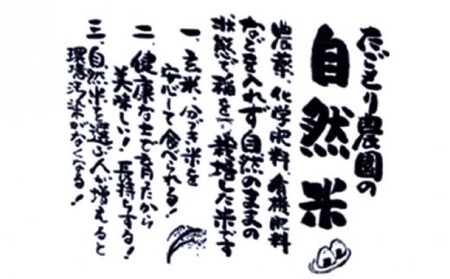 なごもり農園の
自然米
農薬、化学肥料、有機肥料
などを入れず自然のままの
状態で稲を栽培した米です
一、玄米、分づき米を
安心して食べられる!
二、健康な土で育つたから
美味しい!長持ちする!
三、自然米を選ぶ人が増えると
環境汚染がなくなる!